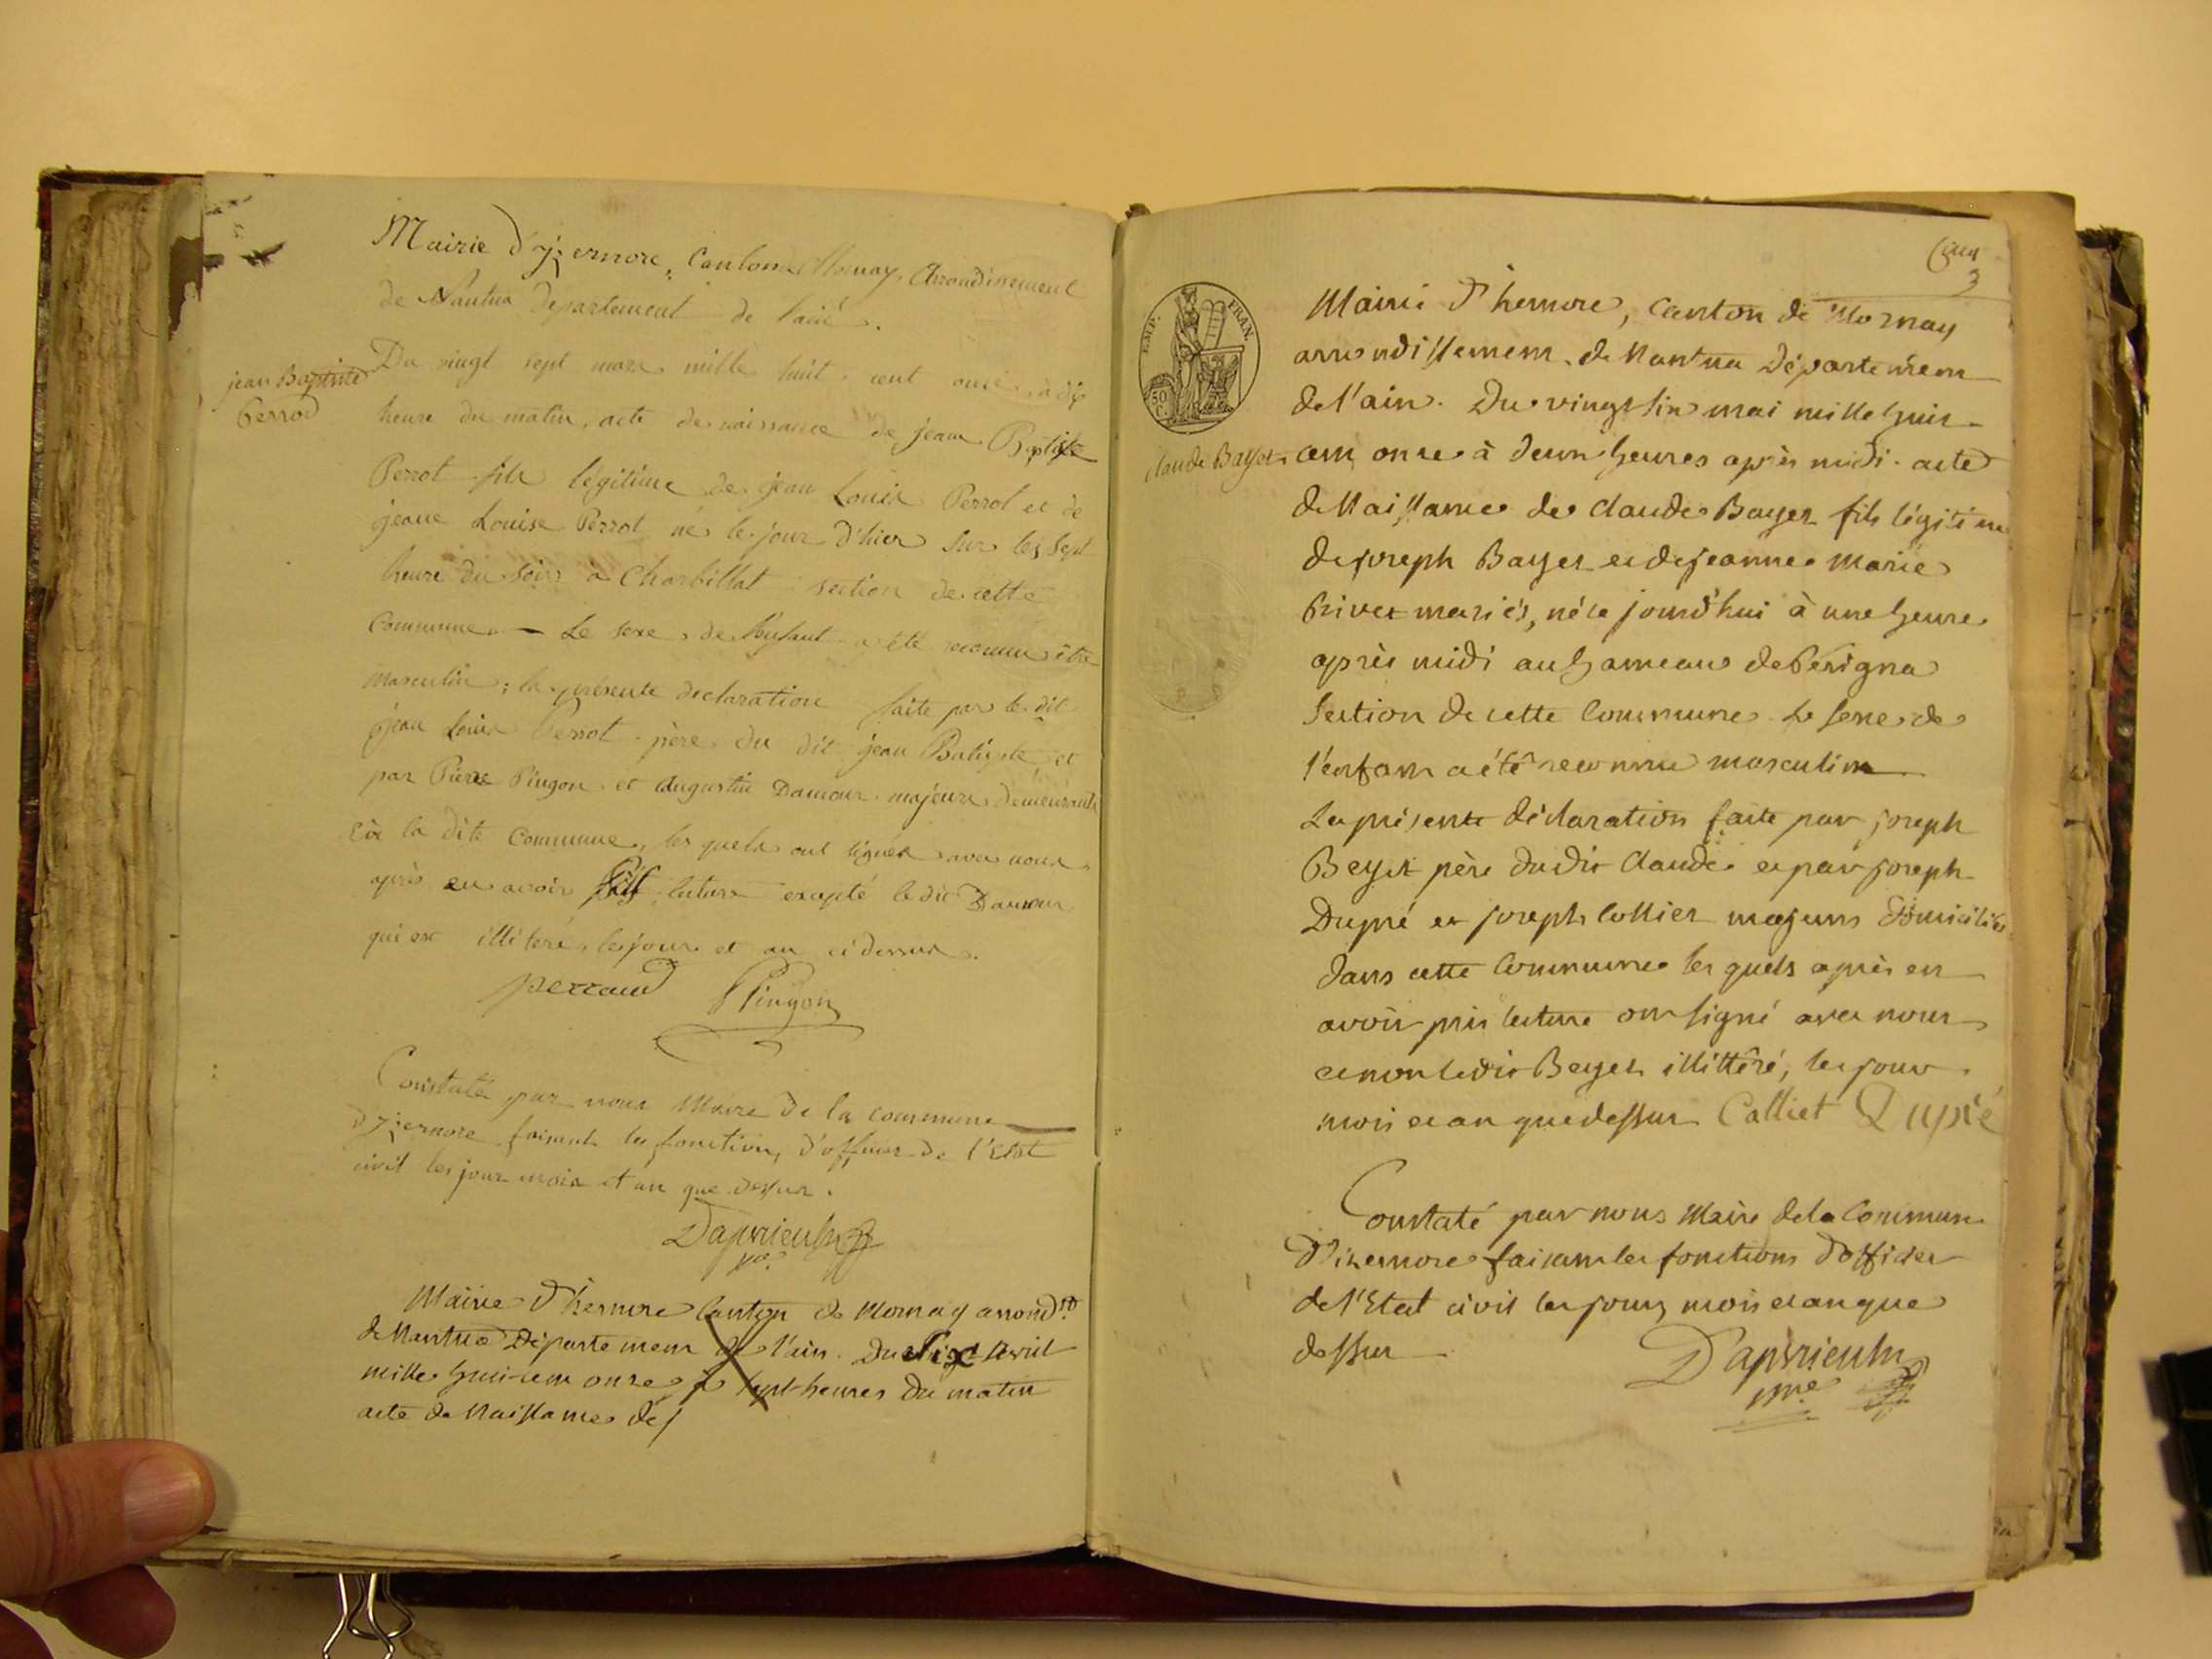 Mairie d'yzernore, Canton de Mornay, Arrondissement
de Nantua departement de l'ain.
jean Baptiste
Perrod
Du vingt sept mars mille huit cent onze, à dix
heure du matin, acte de naissance de jean Baptiste
Perrot fils legitime de jean Louis Perrot et de
jeane Louise Perrot né le jour d'hier sur les sept
heure du soir à Charbillat section de cette
Commune. — Le sexe de l'enfant a été reconnu être
masculin; la présente declaration faite par le dit
jean Louis Perrot père du dit jean Batiste, et
par Pierre Pingon et augustin Damour majeurs demeurants
en la dite Commune, les quels ont signés avec nous
après en avoir fait lecture excepté le dit Damour
qui est illiteré, les jour et an ci dessus.
perraud Pingon
Constaté par nous Maire de la commune
d'yzernore faisant les fonctions d'officier de l'Etat
civil les jour mois et an que dessus.
Daprieulx
Mairie d'izernore Canton de Mornay arrond.t
de Nantua Département de l'ain. Du Six Avril
mille huit cem onze à sept heures du matin
acte de Naissance de
3
EMP. FRAN.
50 C.
Mairie d'izernore, Canton de Mornay
arrondissement de Nantua Département
de l'ain. Du vingt six mai mille huit
Claude Bayet
cent onze à deux heures après midi. acte
de Naissance de Claude Bayet fils légitime
de joseph Bayet et de jeanne Marie
Privet mariés, né ce jourd'hui à une heure
après midi au hameau de Pérignia
Section de cette Commune. Le sexe de
l'enfant a été reconnu masculin
La présente déclaration faite par joseph
Beyet père dudit Claude et par joseph
Dupré et joseph Colliet majeurs domiciliés
dans cette Commune les quels après en
avoir pris lecture ont signé avec nous
et non ledit Beyet illittéré, les jour
mois et an que dessus Colliet Dupré
Constaté par nous Maire de la Commune
D'izernore faisant les fonctions d'officier
de l'Etat civil les jour, mois et an que
dessus
Daprieulx
me